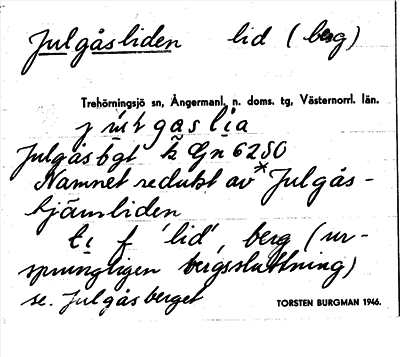 Julgåsliden lid (berg)
Trehörningsjö sn, Ångermanl. n. doms. tg, Västernorrl. län.
Julgåsbgt k Gn 6250
Namnet redukt av *Julgås-
tjärnliden
f 'lid', berg (ur-
sprungligen bergssluttning)
se. Julgåsberget
TORSTEN BURGMAN 1946.